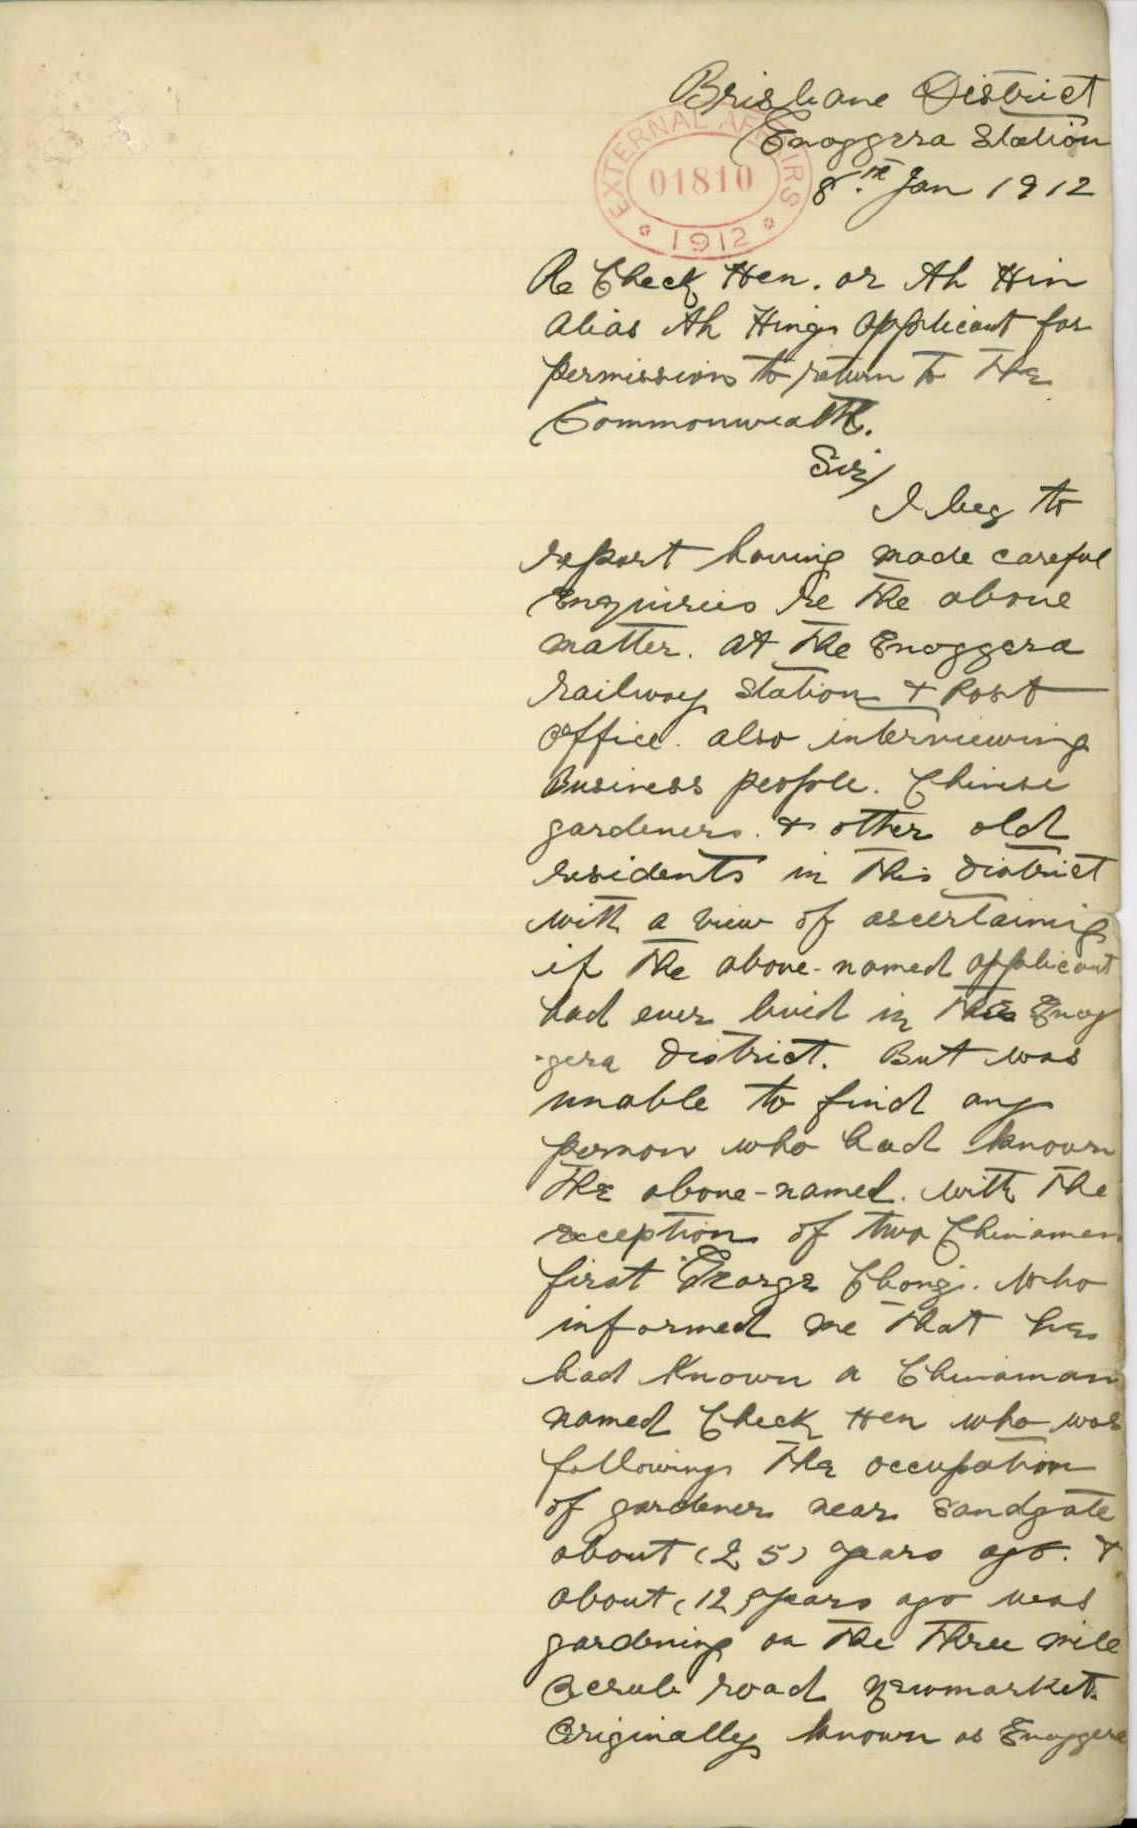 Brisbane District
Enoggera Station
8th Jan 1912
EXTERNAL AFFAIRS
01810
1912
Re Check Hen. or Ah Hin
alias Ah Hing applicant for
permission to return to the
Commonwealth.
Sir/
I beg to
report having made careful
enquiries re the above
matter. at the Enoggera
railway station & Post
office. also interviewing
Business people. Chinese
gardeners. & other old
residents in this district
with a view of ascertaining
if the above-named applicant
had ever lived in the Enog
-gera district. But was
unable to find any
person who had known
the above-named. with the
exception of two Chinamen
first George Chong. who
informed me that he
had known a Chinaman
named Check Hen who was
following the occupation
of gardener near Sandgate
about (25) years ago. &
about (12) years ago was
gardening on the Three mile
Scrub road Newmarket.
Originally known as Enoggera